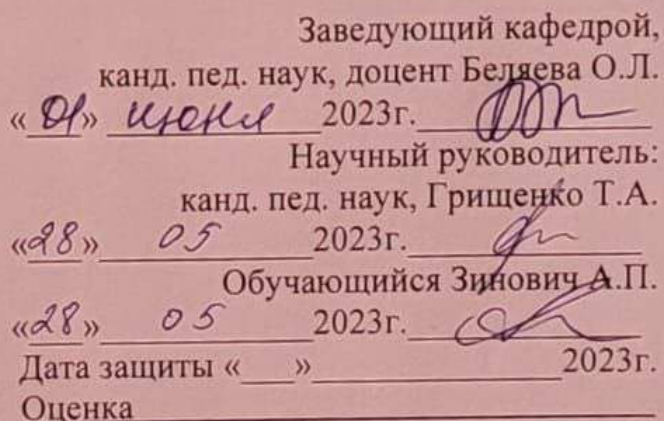 Заведующий кафедрой,
канд. пед. наук, доцент Беляева О.Л.
«01» июня 2023г.
Научный руководитель:
канд. пед. наук, Грищенко Т.А.
«28» 05 2023г.
Обучающийся Зинович А.П.
«28» 05 2023г.
Дата защиты «___»______________2023г.
Оценка______________________________